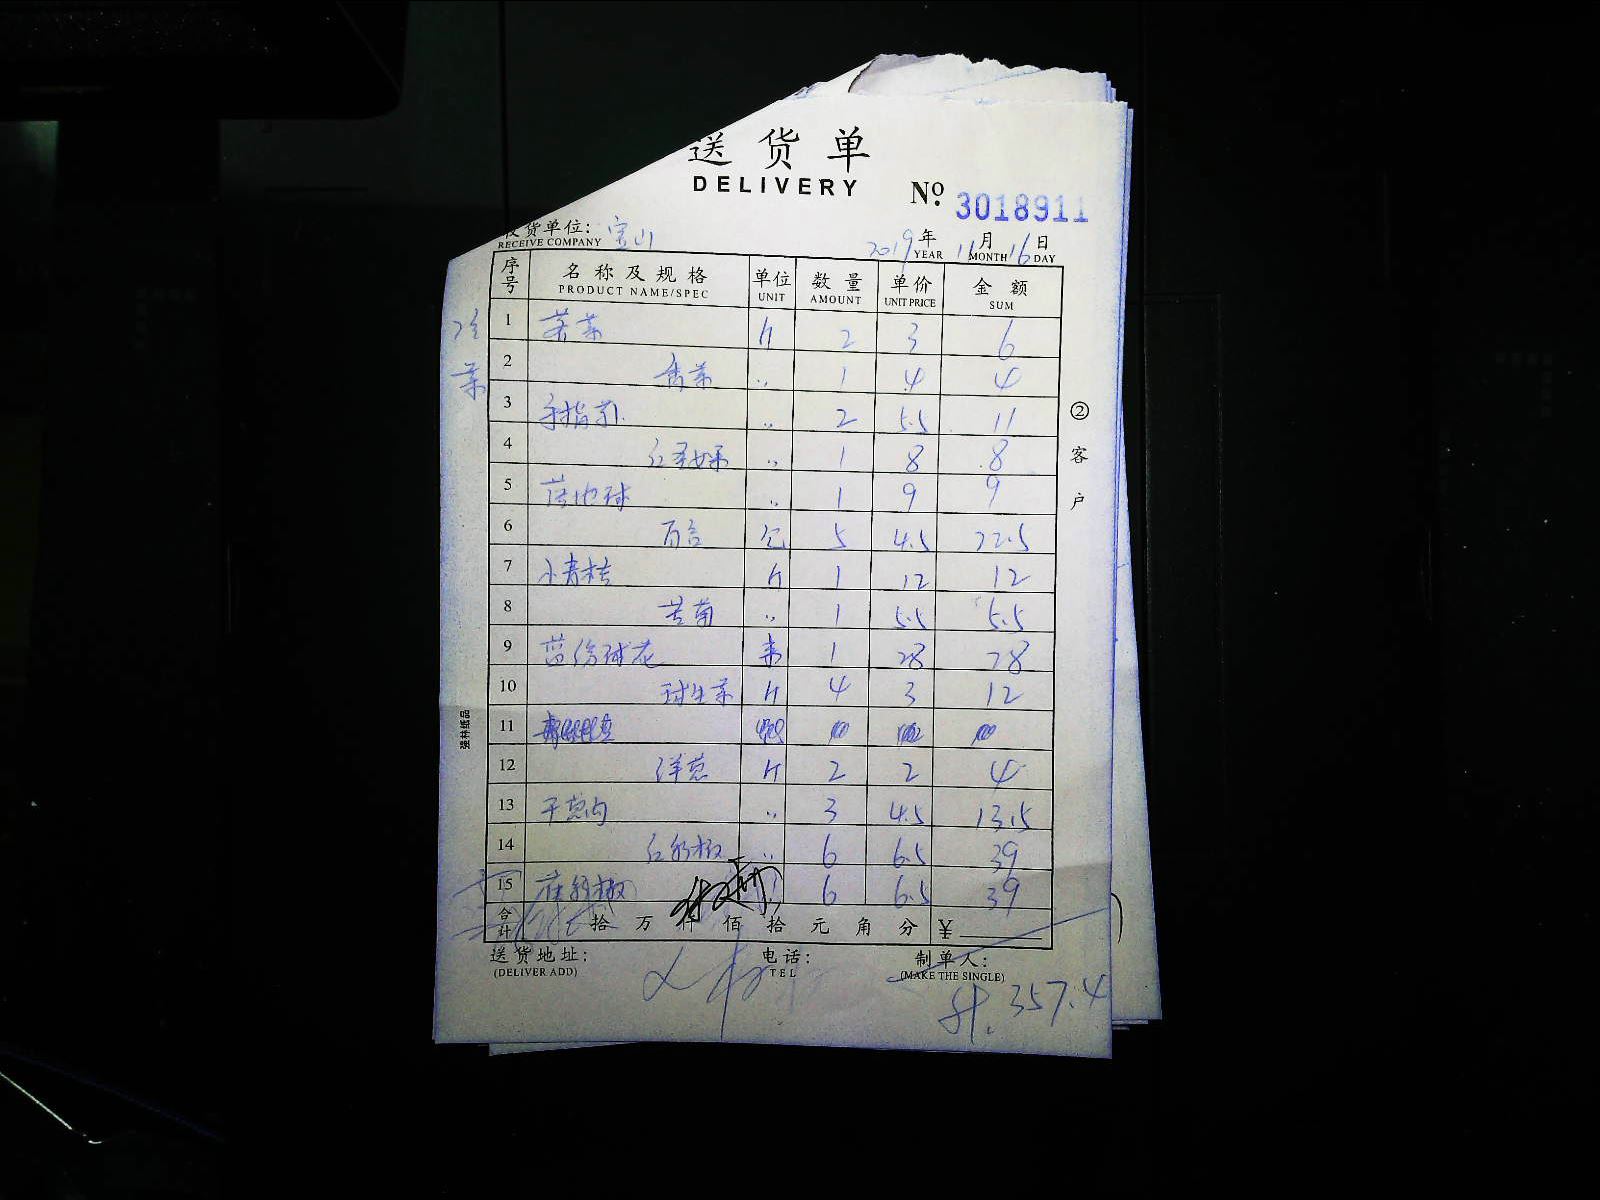 送货单
DELIVERY
No. 3018911
收货单位: 宝山
RECEIVE COMPANY
2019年 11月 16日
YEAR MONTH DAY
序号 名称及规格 单位 数量 单价 金额
PRODUCT NAME/SPEC UNIT AMOUNT UNIT PRICE SUM
冷菜
1 斤 2 3 6
2 香菜 〃 1 4 4
3 〃 2 5.5 11
4 〃 1 8 8
5 〃 1 9 9
6 百合 包 5 4.5 22.5
7 小青桔 斤 1 12 12
8 苦菊 〃 1 5.5 5.5
9 1 28 28
10 球生菜 斤 4 3 12
11
12 洋葱 斤 2 2 4
13 干葱肉 〃 3 4.5 13.5
14 红彩椒 〃 6 6.5 39
15 黄彩椒 6 6.5 39
合计 拾 万 仟 佰 拾 元 角 分 ¥
送货地址:
(DELIVER ADD)
电话:
TEL
制单人:
(MAKE THE SINGLE)
357.4
②客户
强林纸品